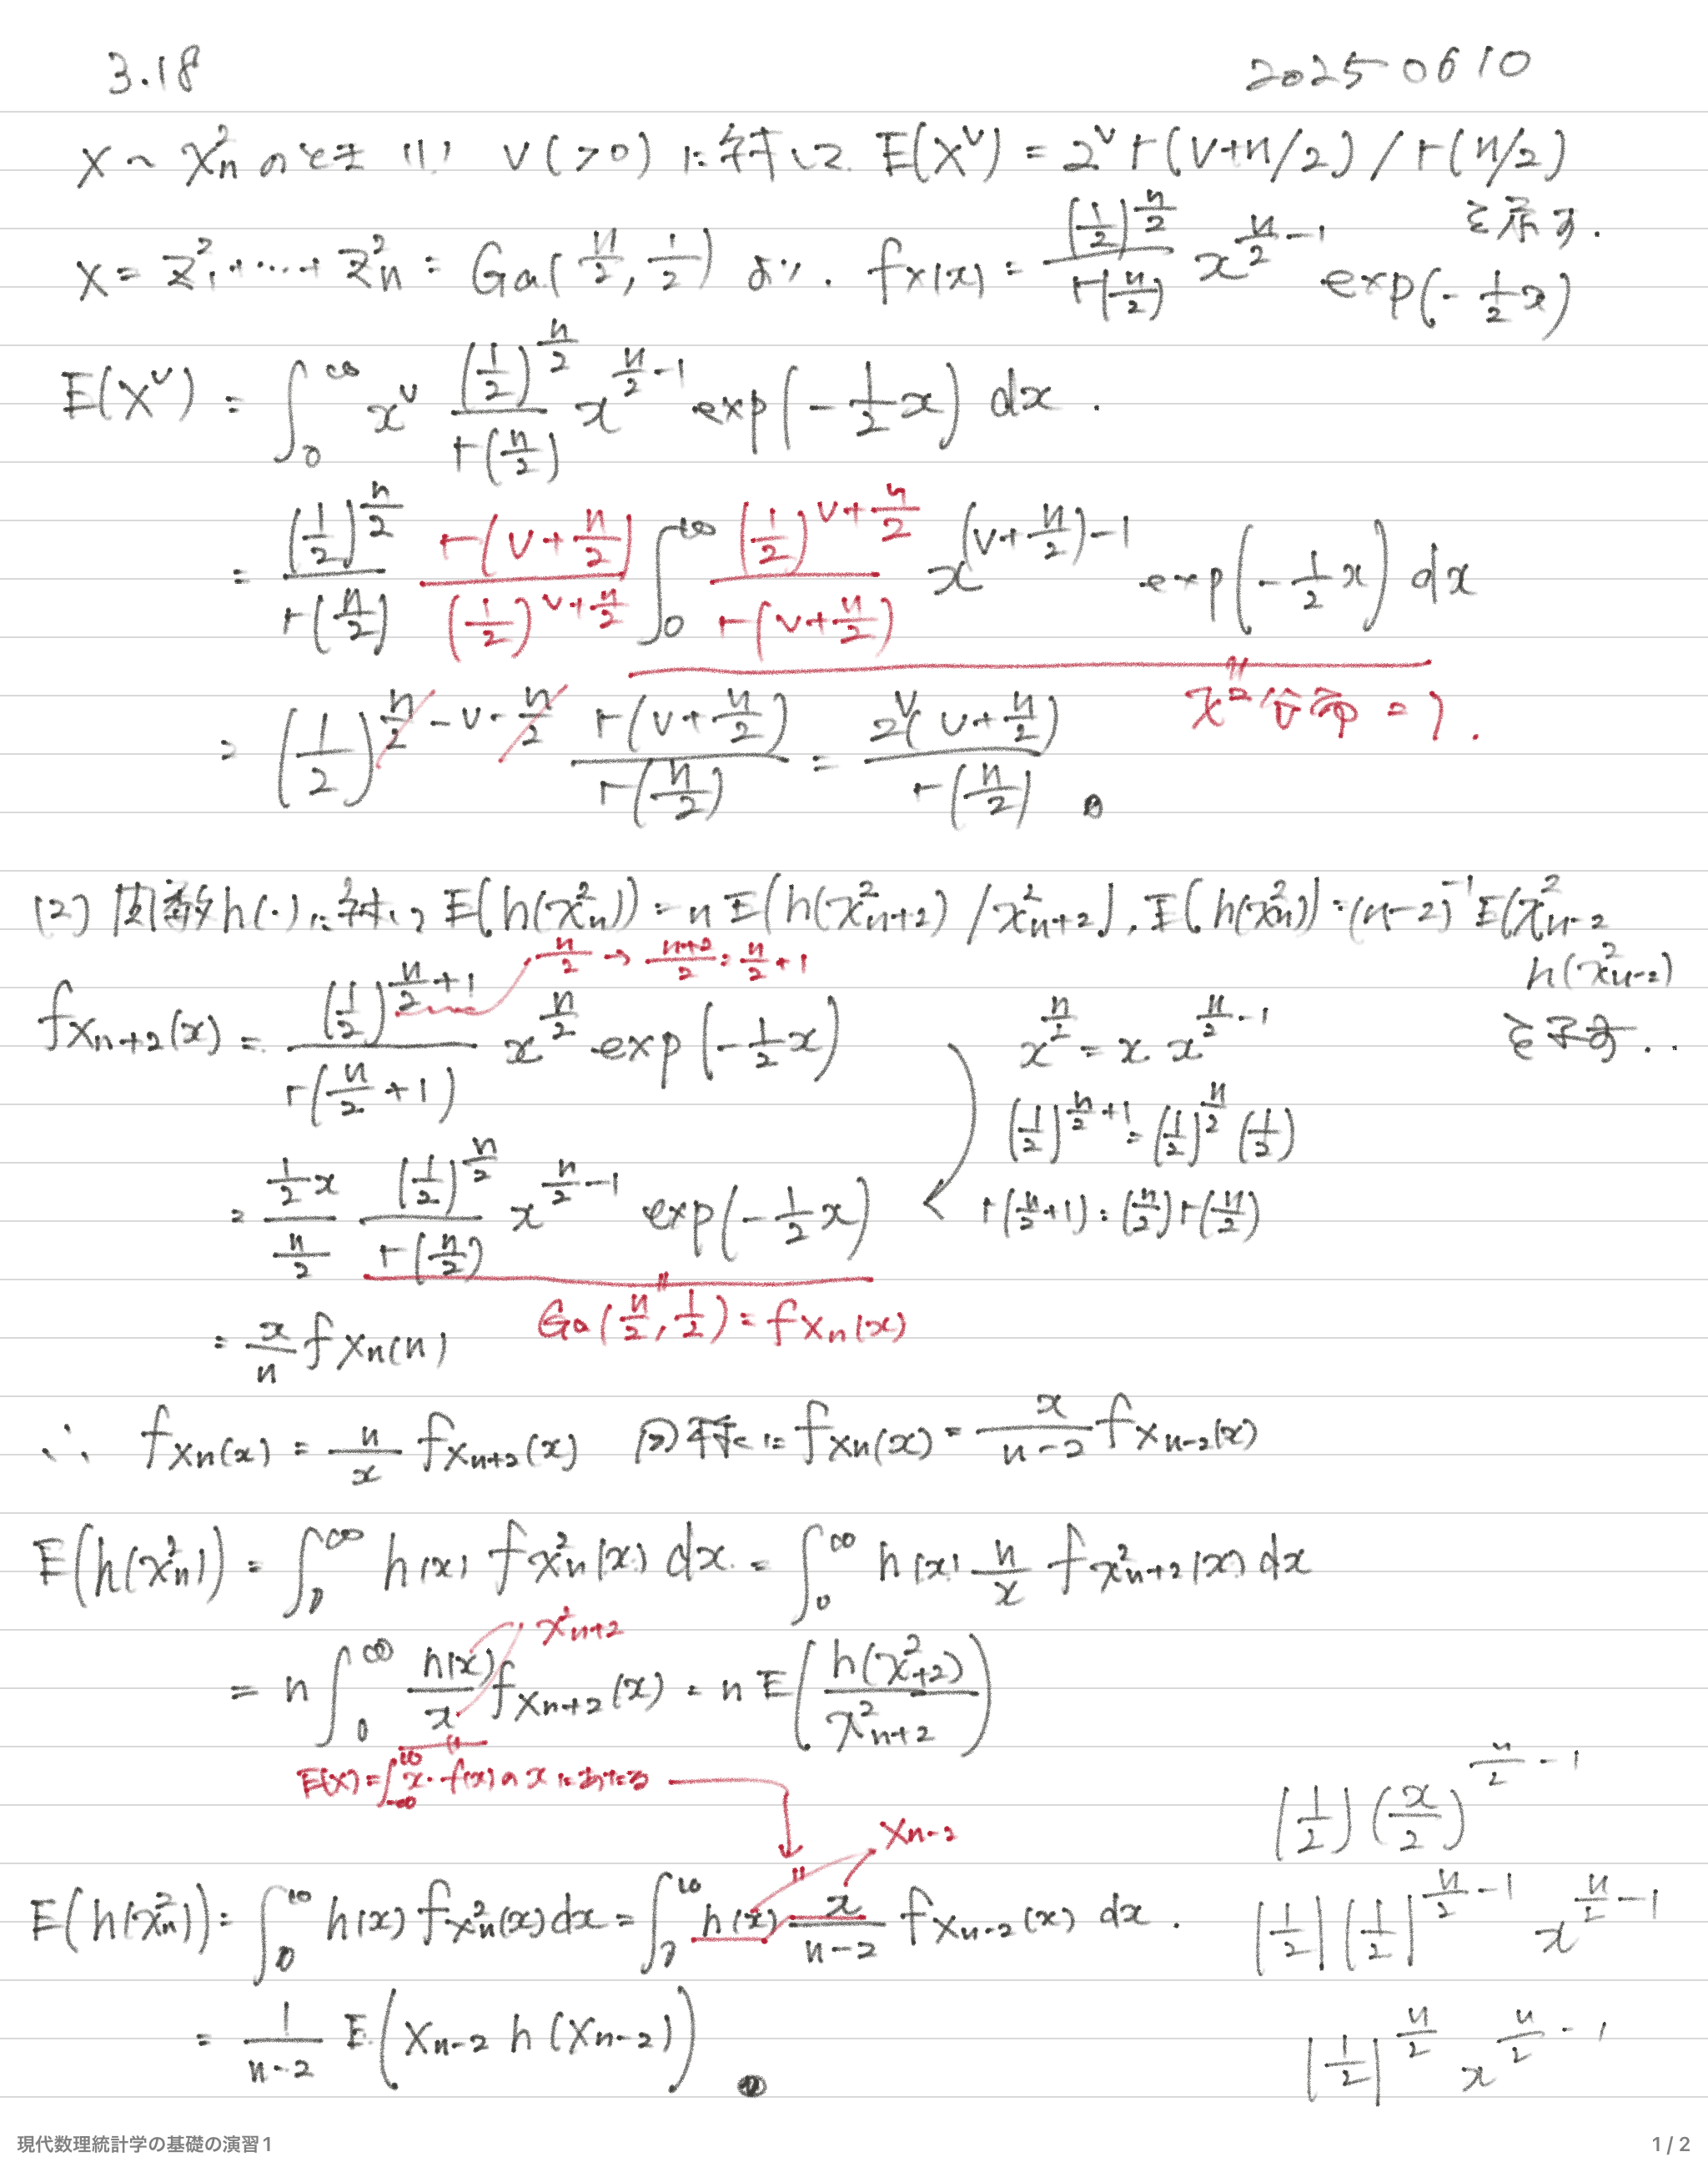 3.18 20250610
X ~ χ²_n のとき (1) ν(>0) に対して E(X^ν) = 2^ν Γ(ν+n/2) / Γ(n/2)
を示す.
X = Z²_1 + ‥‥ + Z²_n = Ga(n/2, 1/2) より. f_X(x) = (1/2)^{n/2} / Γ(n/2) x^{n/2 - 1} exp(-1/2 x)
E(X^ν) = ∫_0^∞ x^ν (1/2)^{n/2} / Γ(n/2) x^{n/2 - 1} exp(-1/2 x) dx .
= (1/2)^{n/2} / Γ(n/2) Γ(ν + n/2) / (1/2)^{ν + n/2} ∫_0^∞ (1/2)^{ν + n/2} / Γ(ν + n/2) x^{(ν + n/2) - 1} exp(-1/2 x) dx
χ²分布 = 1 .
= (1/2)^{n/2 - ν - n/2} Γ(ν + n/2) / Γ(n/2) = 2^ν (ν + n/2) / Γ(n/2)
(2) 関数 h(·) に対して E(h(χ²_n)) = n E(h(χ²_{n+2}) / χ²_{n+2}), E(h(χ²_n)) = (n-2)^{-1} E(χ²_{n-2}
h(χ²_{n-2})
を示す..
n/2 → (n+2)/2 = n/2 + 1
f_{X_{n+2}}(x) = (1/2)^{n/2 + 1} / Γ(n/2 + 1) x^{n/2} exp(-1/2 x)
x^{n/2} = x · x^{n/2 - 1}
(1/2)^{n/2 + 1} = (1/2)^{n/2} (1/2)
Γ(n/2 + 1) = (n/2) Γ(n/2)
= (1/2 x) / (n/2) (1/2)^{n/2} / Γ(n/2) x^{n/2 - 1} exp(-1/2 x)
Ga(n/2, 1/2) = f_{X_n}(x)
= x/n f_{X_n}(n)
∴ f_{X_n}(x) = n/x f_{X_{n+2}}(x) 同様に f_{X_n}(x) = x/(n-2) f_{X_{n-2}}(x)
E(h(χ²_n)) = ∫_0^∞ h(x) f_{χ²_n}(x) dx = ∫_0^∞ h(x) n/x f_{χ²_{n+2}}(x) dx
χ²_{n+2}
= n ∫_0^∞ h(x)/x f_{X_{n+2}}(x) = n E(h(χ²_{+2}) / χ²_{n+2})
E(X) = ∫_{-∞}^∞ x · f(x) の x にあたる
X_{n-2}
E(h(χ²_n)) = ∫_0^∞ h(x) f_{χ²_n}(x) dx = ∫_0^∞ h(x) x/(n-2) f_{X_{n-2}}(x) dx .
= 1/(n-2) E(X_{n-2} h(X_{n-2}))
(1/2) (x/2)^{n/2 - 1}
(1/2) (1/2)^{n/2 - 1} x^{n/2 - 1}
(1/2)^{n/2} x^{n/2 - 1}
現代数理統計学の基礎の演習1 1 / 2